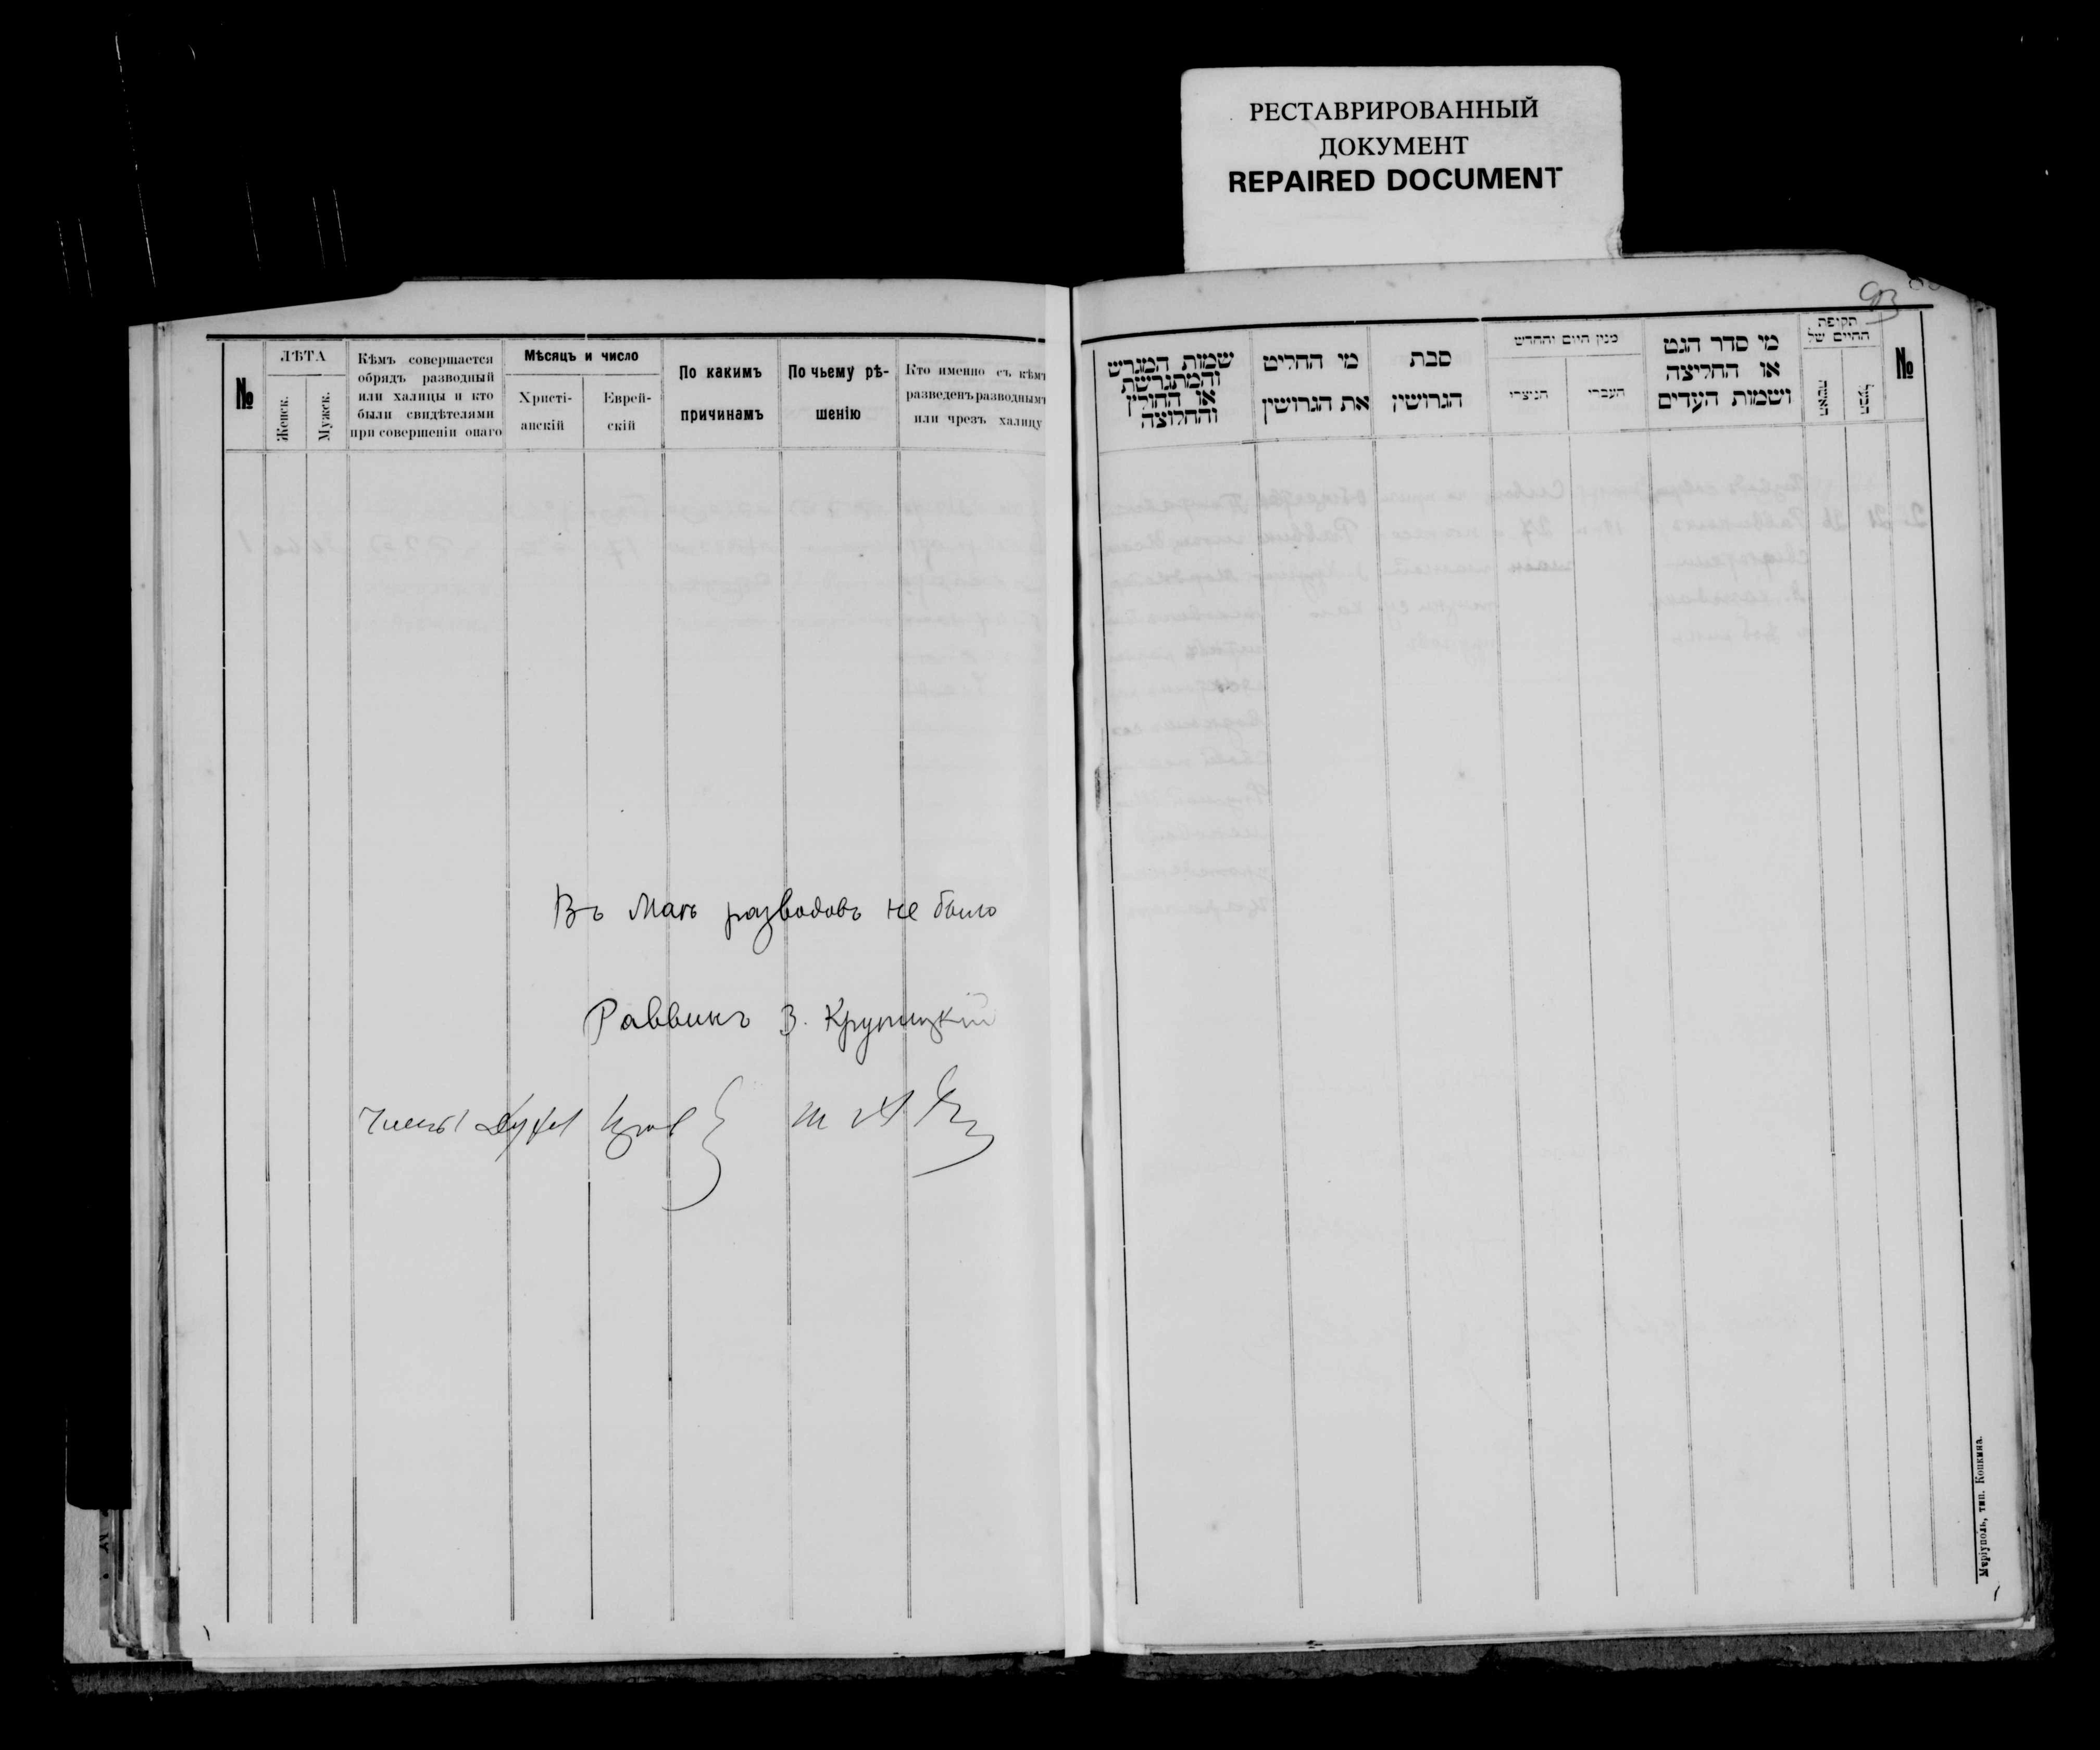 РЕСТАВРИРОВАННЫЙ
ДОКУМЕНТ
REPAIRED DOCUMENT
93
№
ЛѢТА
Женск.
Мужск.
Кѣмъ совершается
обрядъ разводный
или халицы и кто
были свидѣтелями
при совершеніи онаго
Мѣсяцъ и число
Христі-
анскій
Еврей-
скій
По какимъ
причинамъ
По чьему рѣ-
шенію
Кто именно съ кѣмъ
разведенъ разводнымъ
или чрезъ халицу
Въ Маѣ разводовъ не было
Раввинъ В. Крупицкій
Члены
שמות המגרש
והמתגרשת
או החולץ
והחלוצה
מי החליט
את הגרושין
סבת
הגרושין
מנין היום והחדש
הנוצרי
העברי
מי סדר הגט
או החליצה
ושמות העדים
תקופת
החיים של
האשה
הבעל
№
Маріуполь, тип. Копкина.